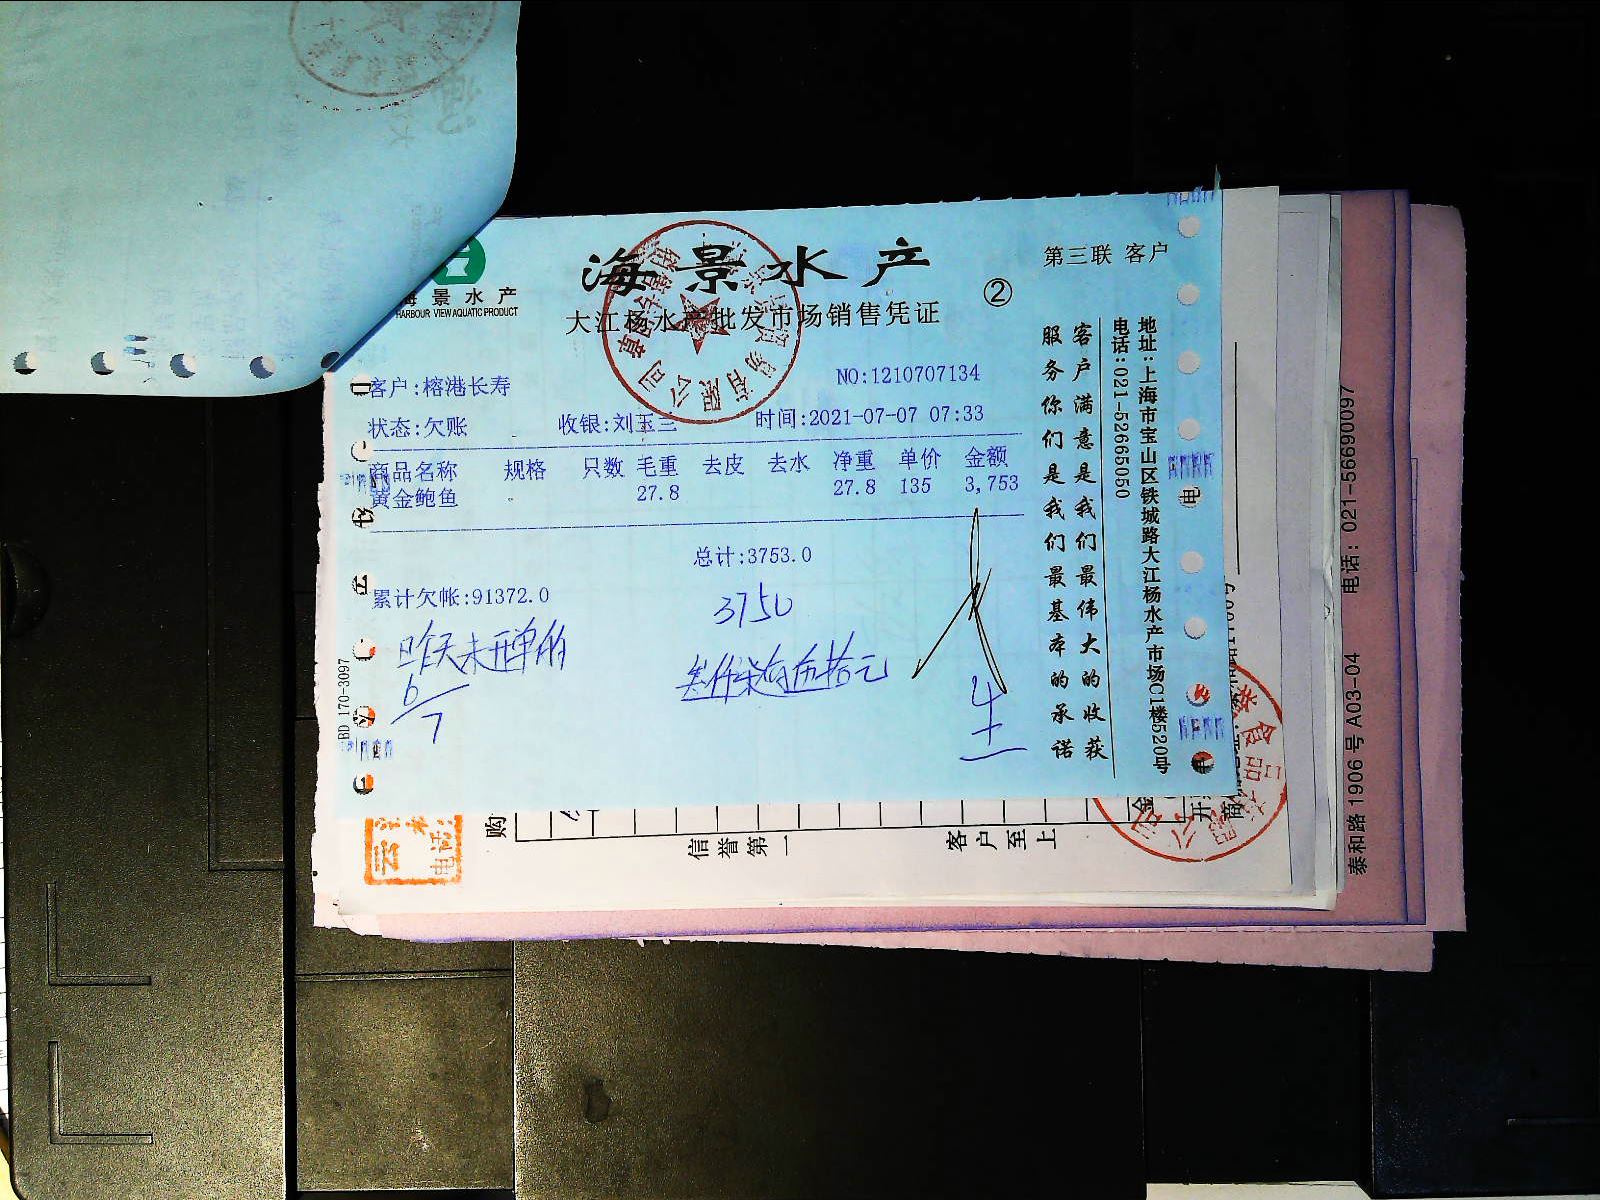 海景水产
HARBOUR VIEW AQUATIC PRODUCT
海景水产
大江杨水产批发市场销售凭证
②
第三联 客户
客户:榕港长寿
NO:1210707134
状态:欠账 收银:刘玉兰 时间:2021-07-07 07:33
商品名称 规格 只数 毛重 去皮 去水 净重 单价 金额
黄金鲍鱼 27.8 27.8 135 3,753
总计:3753.0
累计欠帐:91372.0
3750
昨天未开单的
6/7
叁仟柒佰伍拾元
生
客户满意是我们最伟大的收获
服务你们是我们最基本的承诺
地址:上海市宝山区铁城路大江杨水产市场C1楼520号
电话:021-52665050
BD 170-3097
购
信誉第一
客户至上
电话:
泰和路 1906 号 A03-04 电话: 021-56690097